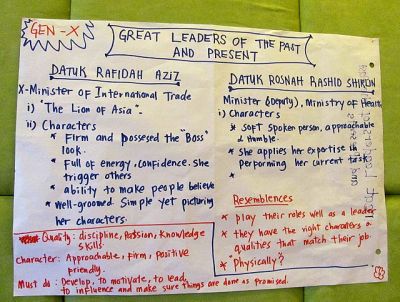 GEN-X
GREAT LEADERS OF THE PAST
AND PRESENT
DATUK RAFIDAH AZIZ
X-Minister of International Trade
i) "The Lion of Asia".
ii) Characters
* Firm and possesed the "Boss"
look.
* Full of energy, confidence. She
trigger others
* ability to make people believe
* Well-groomed. Simple yet picturing
her characters.
DATUK ROSNAH RASHID SHIRLIN
Minister (Deputy), Ministry of Health
i) Characters
* Soft spoken person, approachable
& Humble.
* She applies her expertise in
performing her current task
*
Resemblences
* play their roles well as a leader
* they have the right characters &
qualities that match their job.
* "Physically?"
Quality: discipline, Passion, Knowledge
Skills.
Character: Approachable, Firm, Positive
friendly.
Must do: Develop, to motivate, to lead,
to influence and make sure things are done as promised.